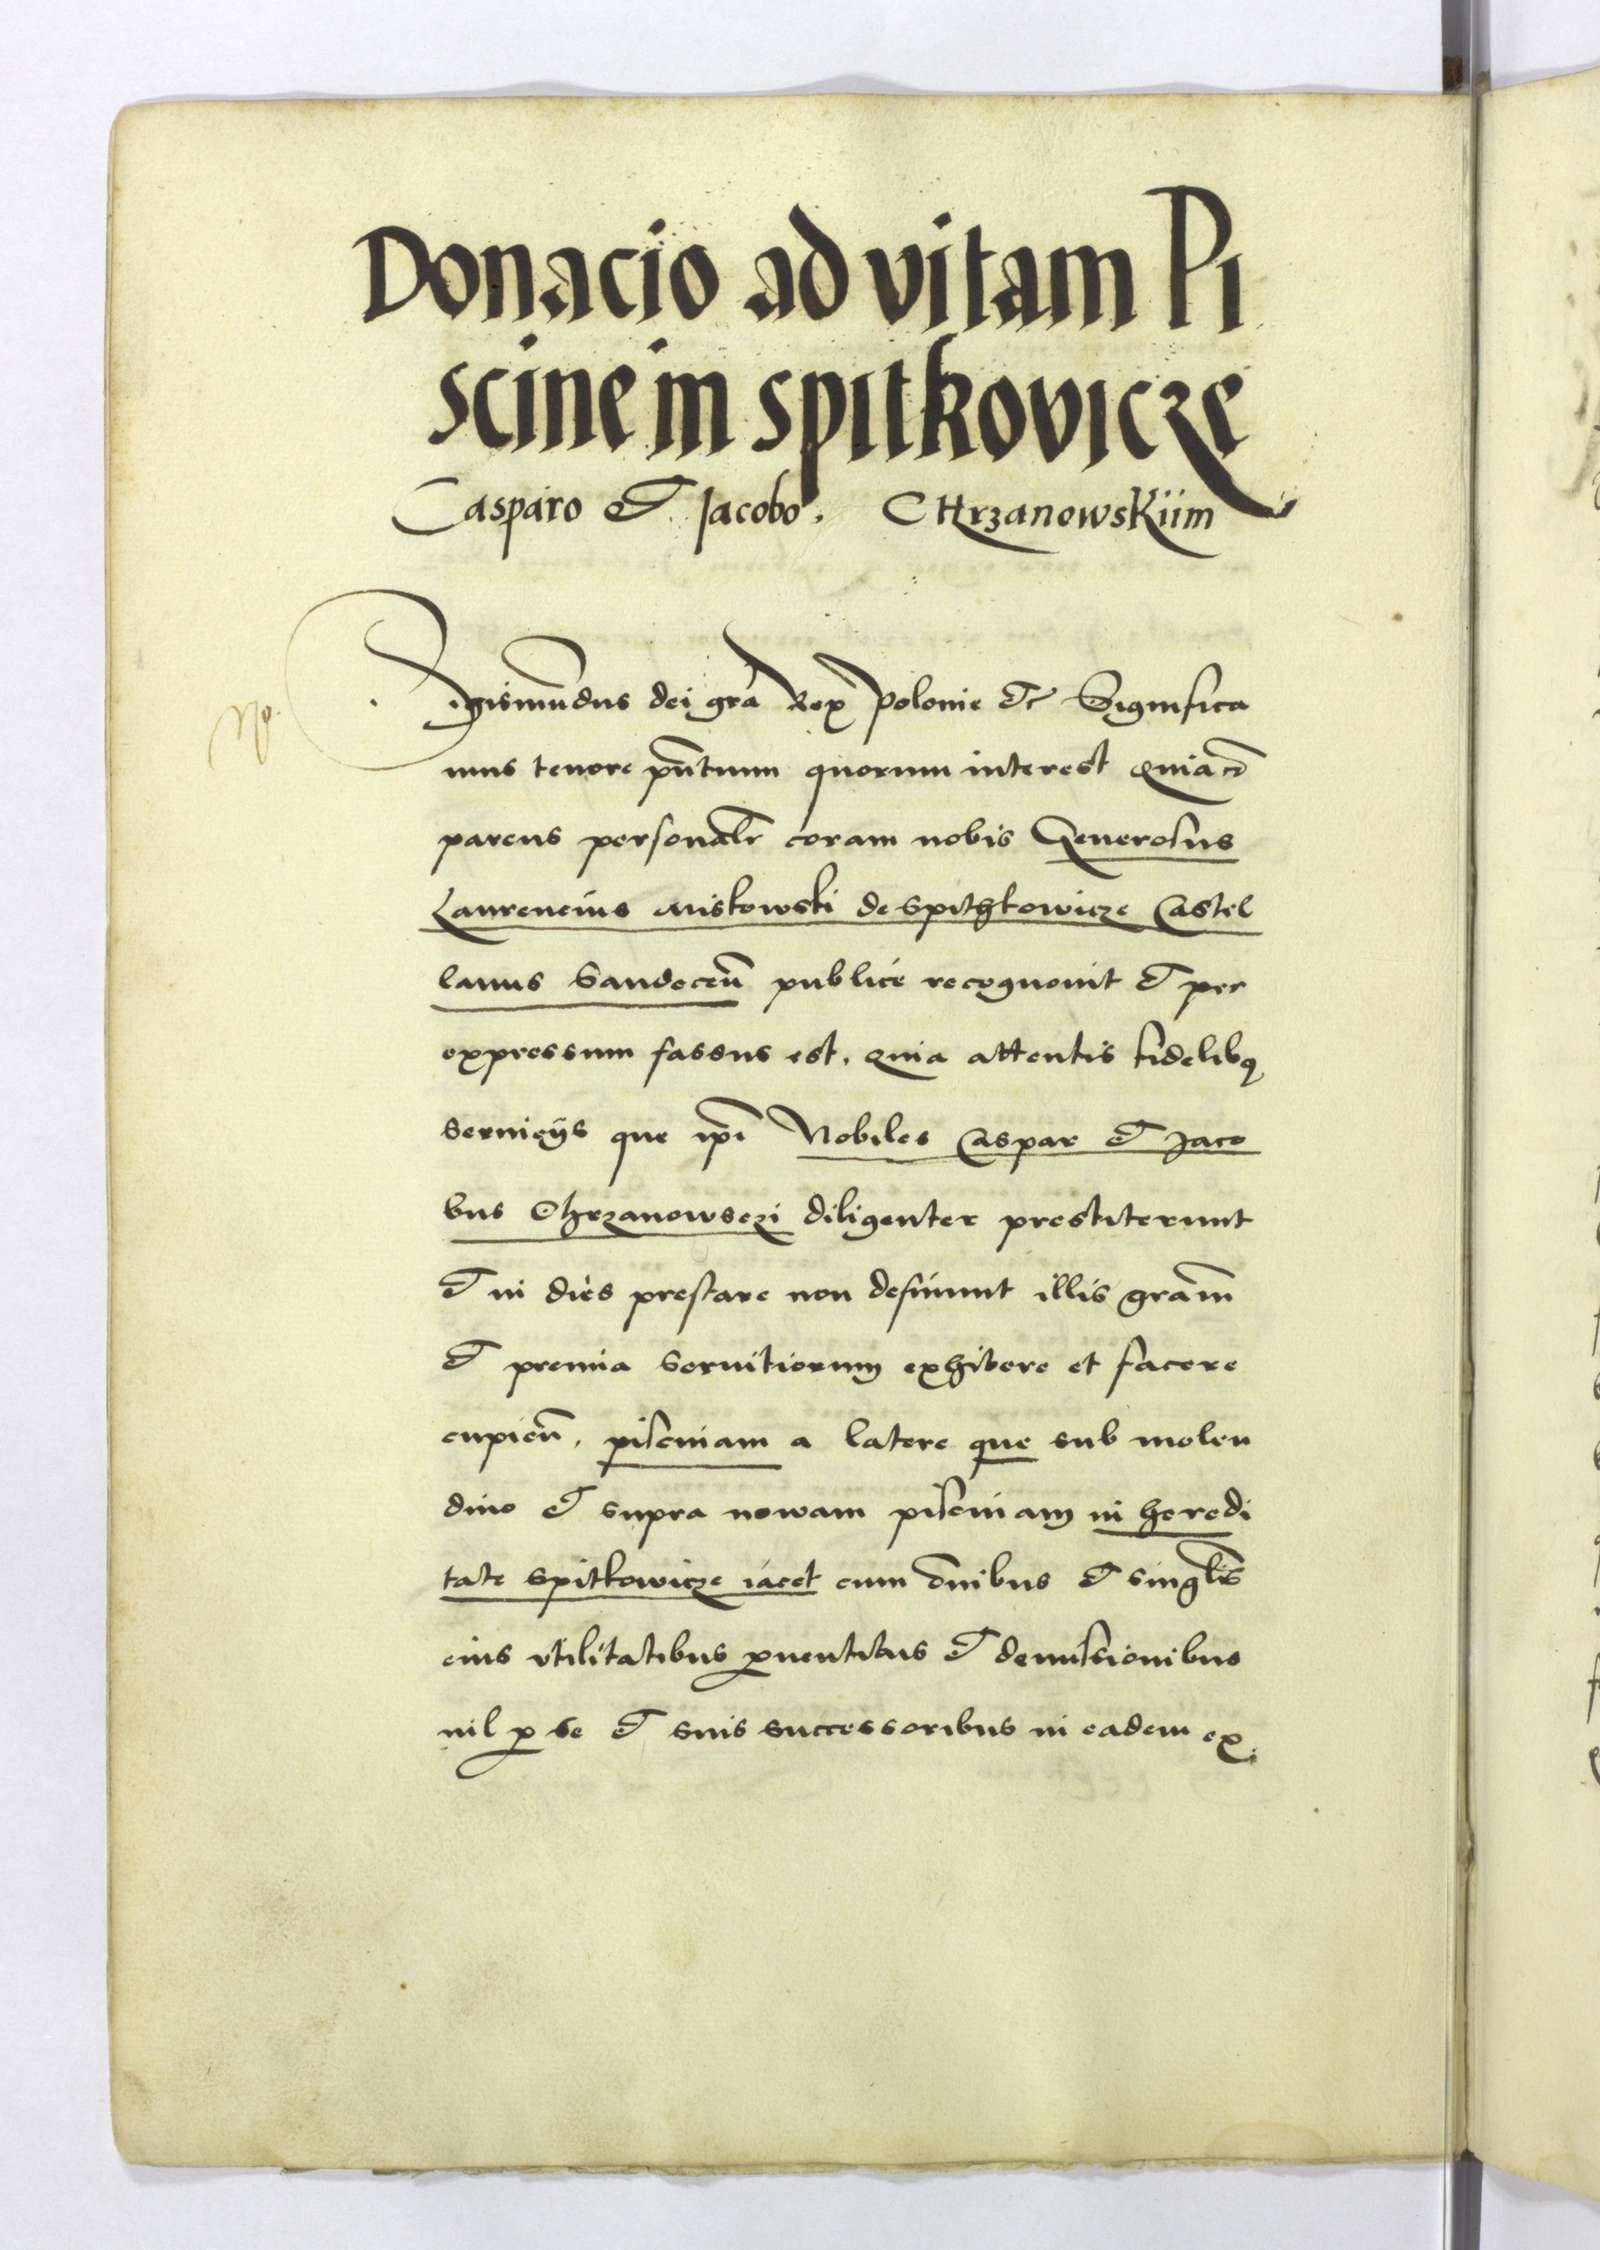 Donacio ad vitam Pi
scine in spitkovicze
Casparo et Jacobo. CHrzanowskiim
Sigismūdus dei gr̄a Rex Polonie etc Significa
mus tenore pn̄tium quorum interest Quia cō
parens personalr̄ coram nobis Generosus
Laurencius Miskowski de Spithkowicze Castel
lanus Sandeceñ publice recognouit et per
expressum fassus est. quia attentis fidelibꝯ
seruicijs que ip̄i Nobiles Caspar et Jaco
bus Chrzanowsczi diligenter prestiterunt
et in dies prestare non desinunt illis gra͞m
et premia seruitiorum exhibere et facere
cupieñ. piscinam a latere que sub molen
dino et supra nowam piscinam in heredi
tate Spitkowicze iacet cum o͞nibus et singl̄is
eius vtilitatibus ꝓuentibus et demissionibus
nil ꝓ se et suis successoribus in eadem ex